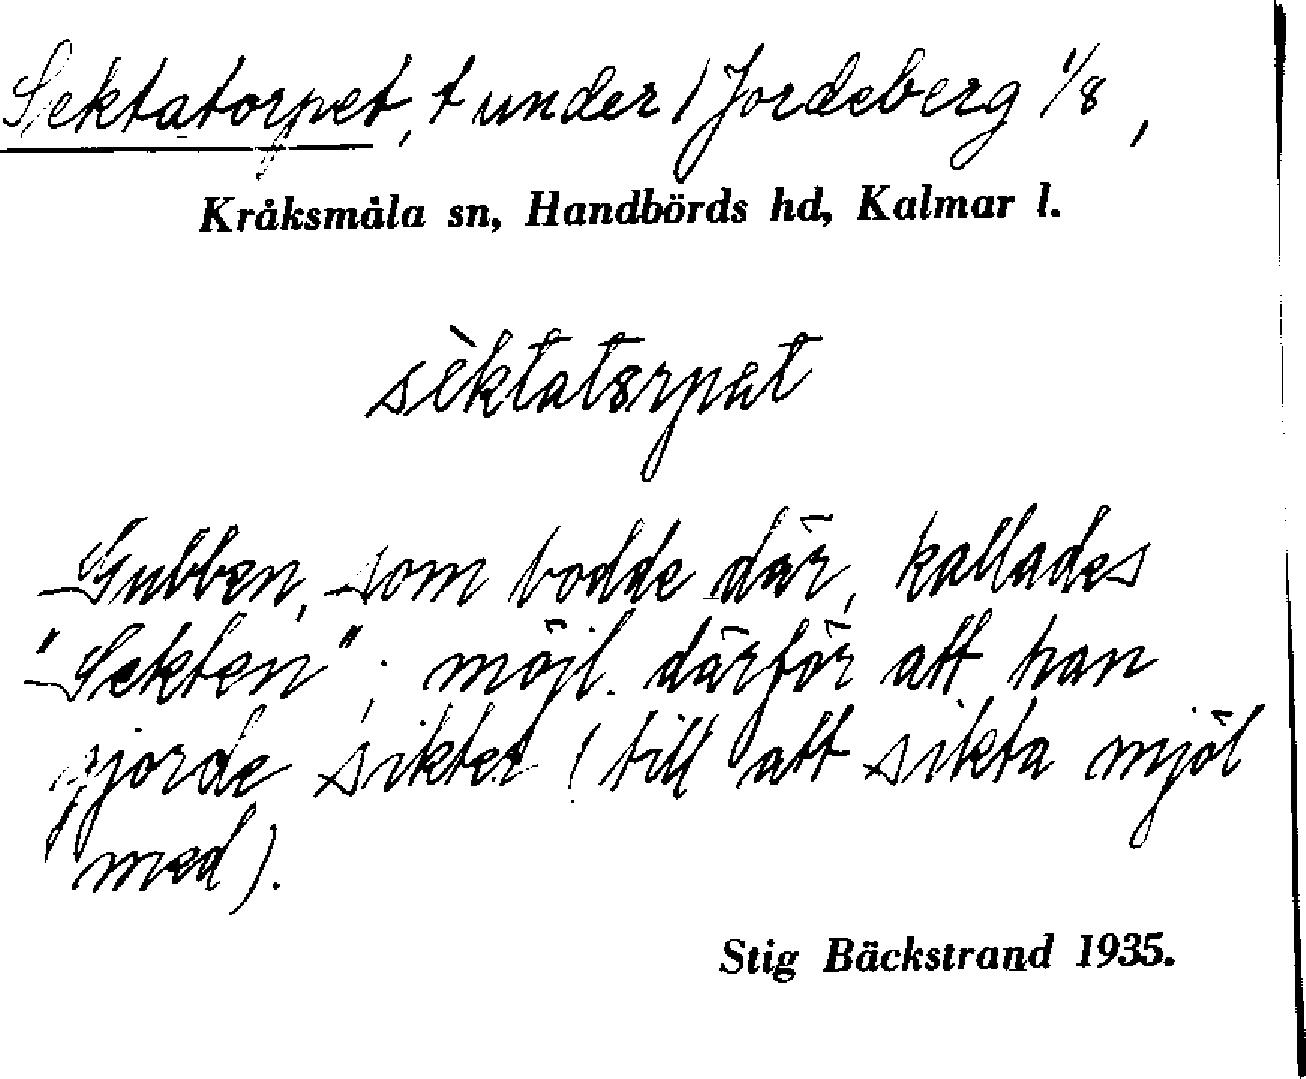 Sektatorpet, t under 1 Jordeberg 1/8,
Kråksmåla sn, Handbörds hd, Kalmar l.
sèktatɛrpat
Gubben, som bodde där, kallades
"Sekten"; möjl. därför att han
gjorde siktet (till att sikta mjöl
med).
Stig Bäckstrand 1935.